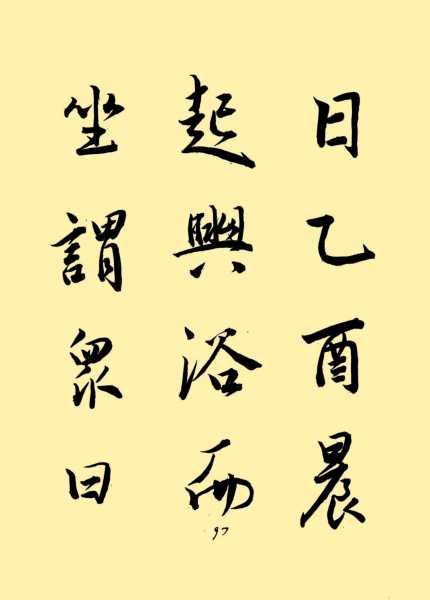 日乙酉晨
起興浴而
坐謂眾曰
97